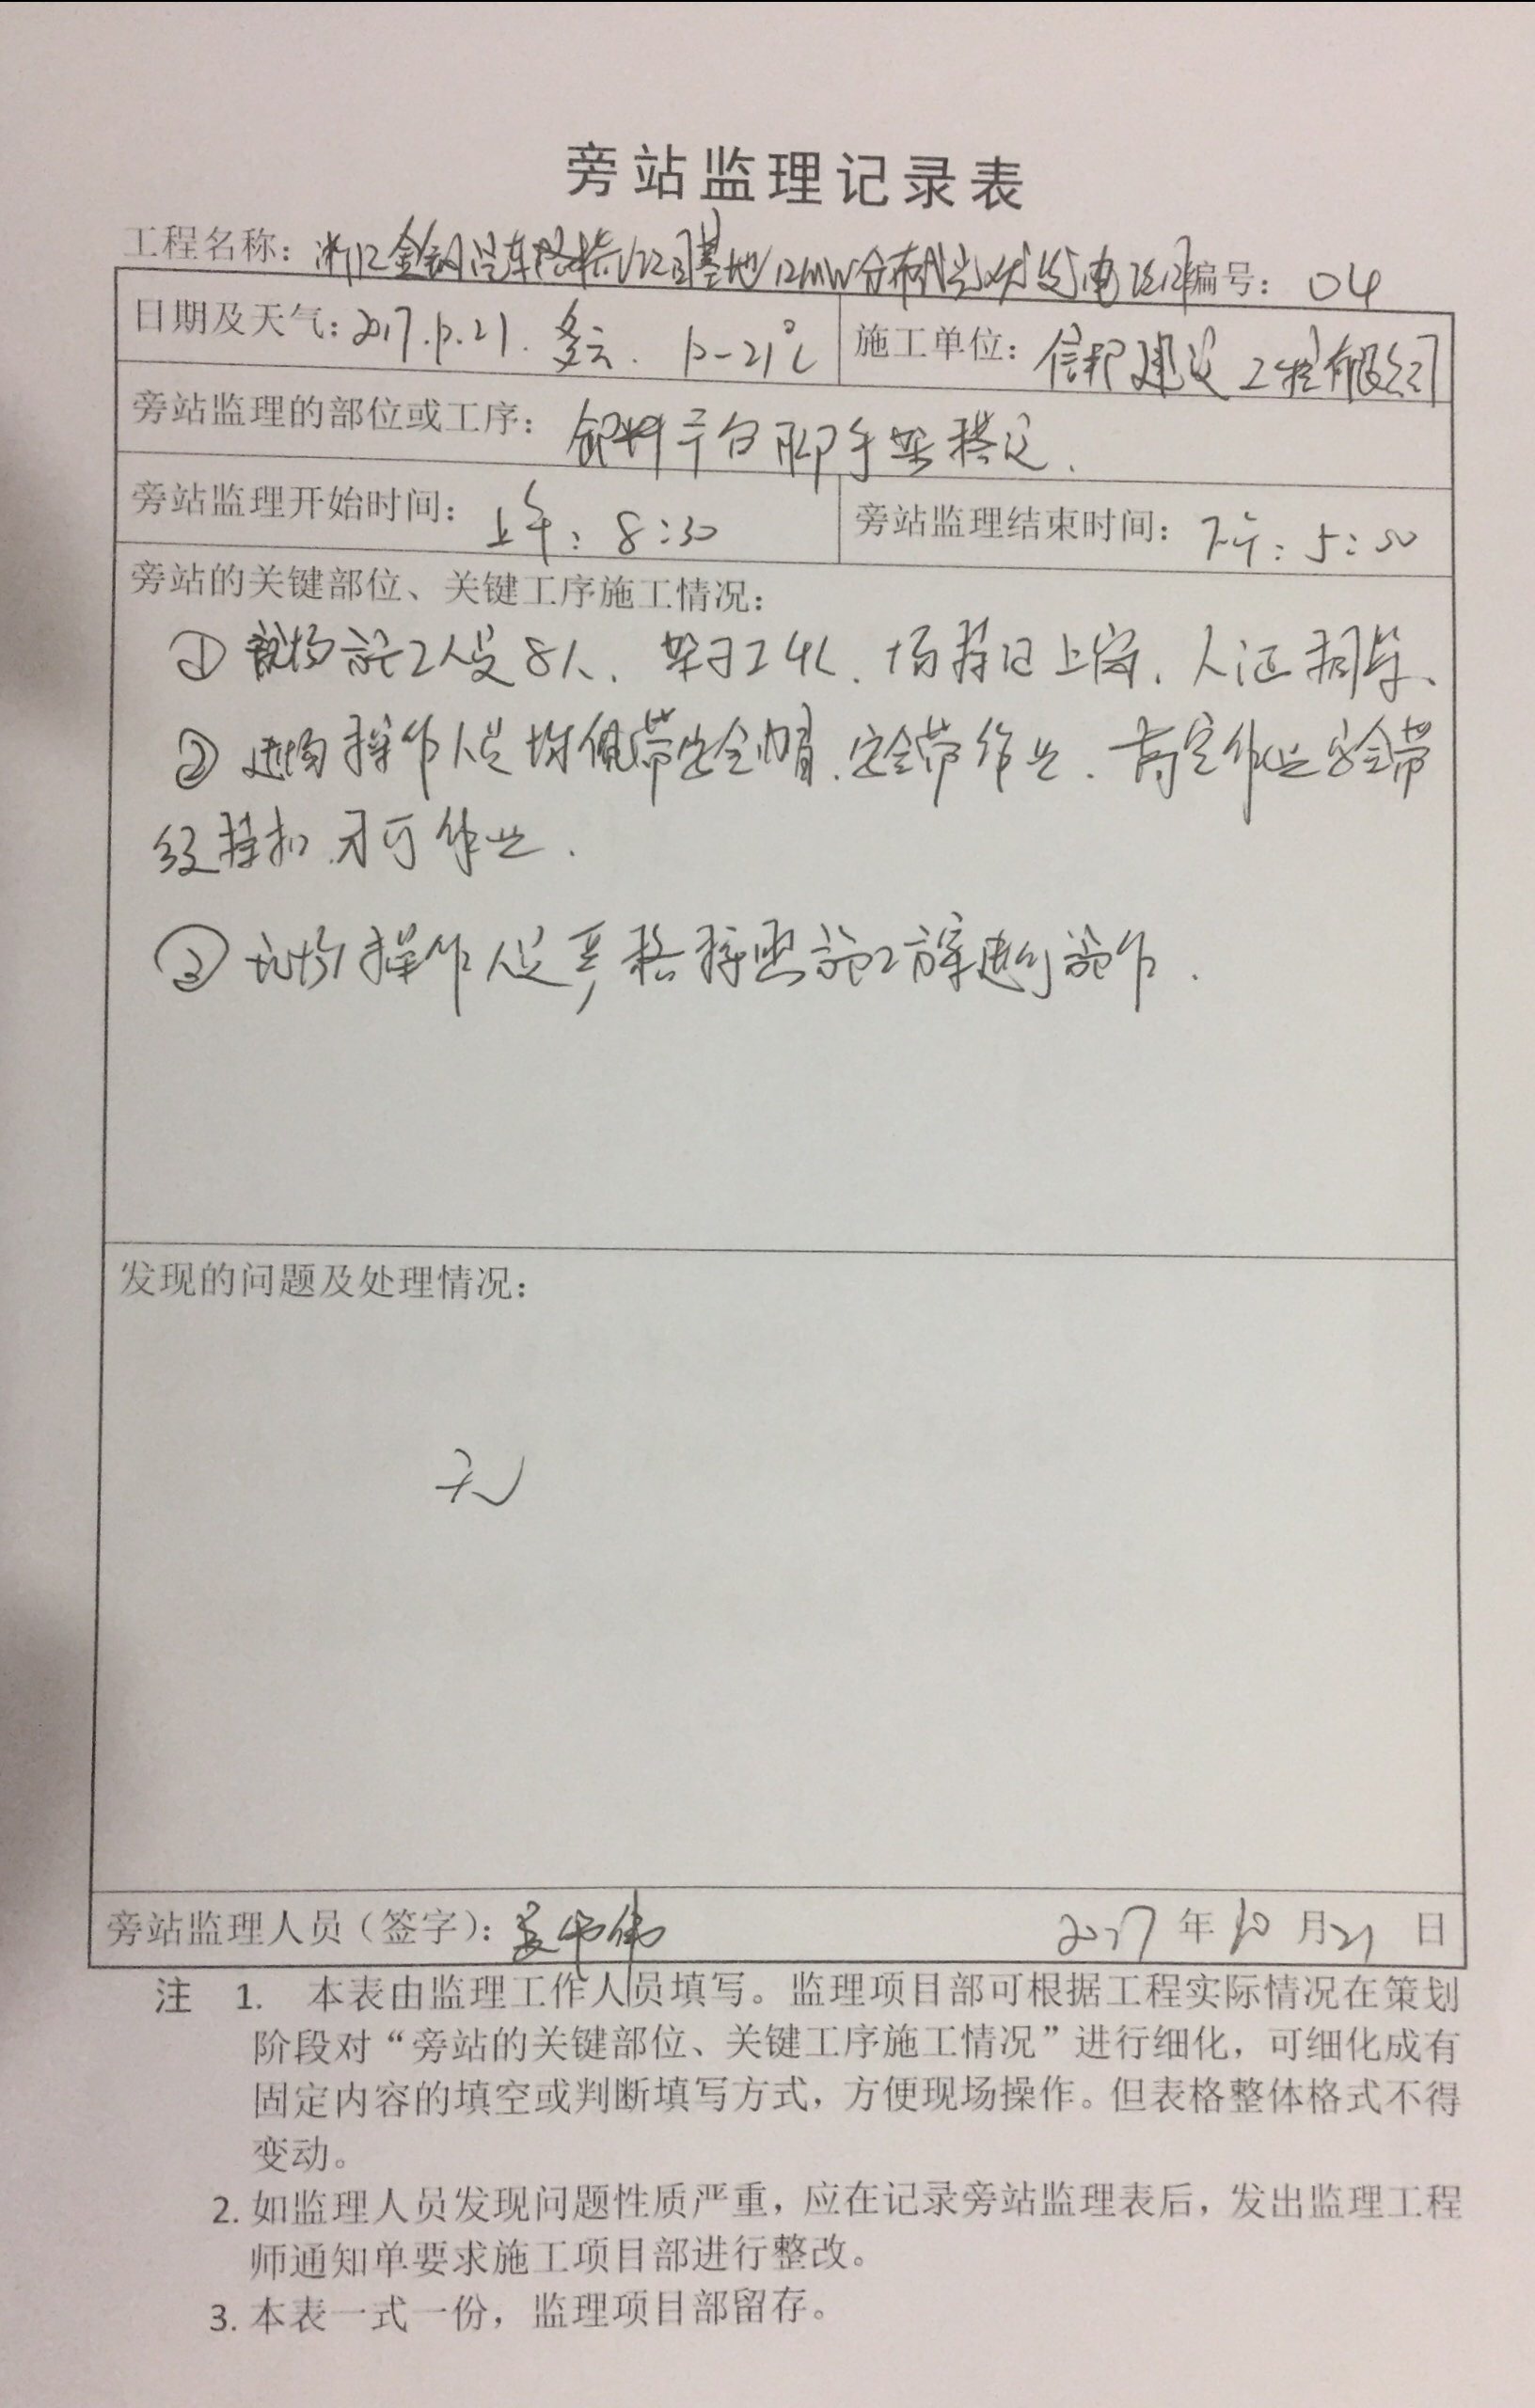 旁站监理记录表
工程名称：浙江金刚汽车 基地12MW分布式光伏发电项目 编号：04
日期及天气：2017.10.21. 多云. 10-21℃ 施工单位：信邦建设工程有限公司
旁站监理的部位或工序：卸料平台脚手架搭设.
旁站监理开始时间：上午：8:30 旁站监理结束时间：下午：5:00
旁站的关键部位、关键工序施工情况：
① 现场施工人员8人、架子工4人.均持证上岗.人证相符、
② 进场操作人员均佩带安全帽.安全带作业.高空作业安全带
挂扣.才可作业.
③ 现场操作人员严格按照施工方案进行施作.
发现的问题及处理情况：
无
旁站监理人员（签字）： 2017 年 10 月 21 日
注 1. 本表由监理工作人员填写。监理项目部可根据工程实际情况在策划
阶段对“旁站的关键部位、关键工序施工情况”进行细化，可细化成有
固定内容的填空或判断填写方式，方便现场操作。但表格整体格式不得
变动。
2. 如监理人员发现问题性质严重，应在记录旁站监理表后，发出监理工程
师通知单要求施工项目部进行整改。
3. 本表一式一份，监理项目部留存。